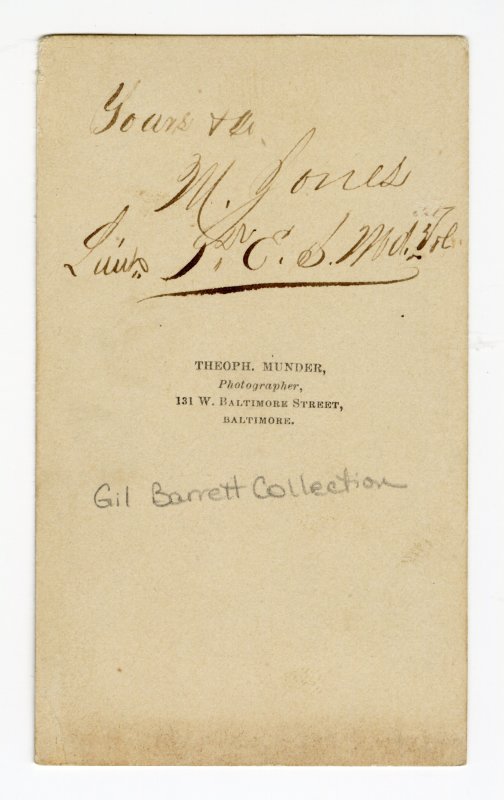 Yours &c
M. Jones
Lieut. E. S. Md. Vol.
THEOPH. MUNDER,
Photographer,
131 W. BALTIMORE STREET,
BALTIMORE.
Gil Barrett Collection